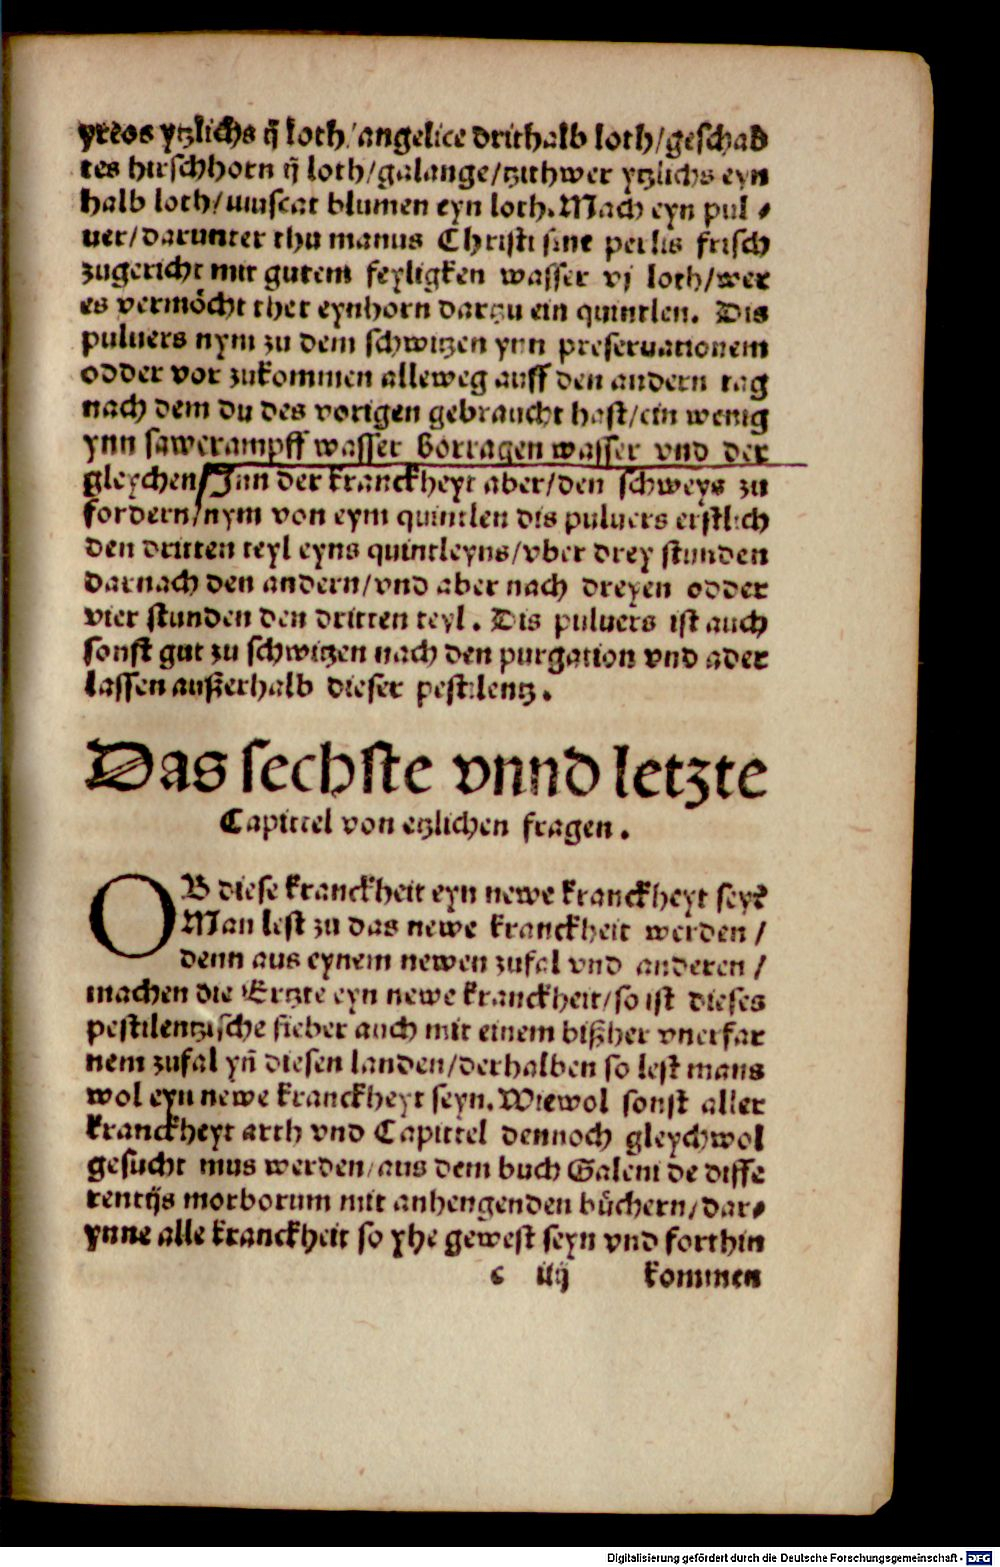 yreos ytzlichs ij loth/angelice drithalb loth/geschab
tes hirschhorn ij loth/galange/tzithwer ytzlichs eyn
halb loth/muscat blumen eyn loth. Mach eyn pul⸗
uer/darunter thu manus Christi sine perlis frisch
zugericht mit gutem feyligken wasser vj loth/wer
es vermöcht thet eynhorn dartzu ein quintlen. Dis
puluers nym zu dem schwitzen ynn preseruationem
odder vor zukommen alleweg auff den andern tag
nach dem du des vorigen gebraucht hast/ein wenig
ynn sawerampff wasser Borragen wasser vnd der
gleychen/Inn der kranckheyt aber/den schweys zu
fordern/nym von eym quintlen dis puluers erstlich
den dritten teyl eyns quintleyns/vber drey stunden
darnach den andern/vnd aber nach dreyen odder
vier stunden den dritten teyl. Dis puluers ist auch
sonst gut zu schwitzen nach den purgation vnd ader
lassen außerhalb dieser pestilentz.
Das sechste vnnd letzte
Capittel von etzlichen fragen.
OB diese kranckheit eyn newe kranckheyt sey?
Man lest zu das newe kranckheit werden/
denn aus eynem newen zufal vnd anderen/
machen die Ertzte eyn newe kranckheit/so ist dieses
pestilentzische fieber auch mit einem bißher vnerfar
nem zufal yn̄ diesen landen/derhalben so lest mans
wol eyn newe kranckheyt seyn. Wiewol sonst aller
kranckheyt arth vnd Capittel dennoch gleychwol
gesucht mus werden/aus dem buch Galeni de diffe
rentijs morborum mit anhengenden büchern/dar⸗
ynne alle kranckheit so yhe gewest seyn vnd forthin
c iiij kommen
Digitalisierung gefördert durch die Deutsche Forschungsgemeinschaft - DFG